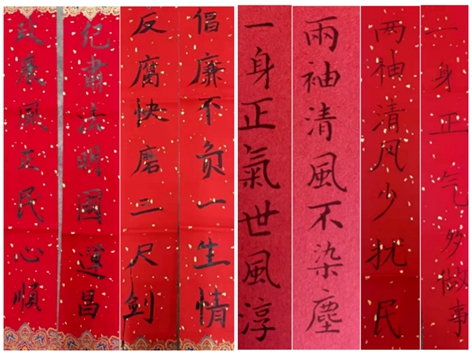 一身正气多做事
两袖清风少扰民
兩袖清風不染塵
一身正氣世風淳
倡廉不负一生情
反腐快磨三尺剑
纪肃法明國運昌
政展風正民心順